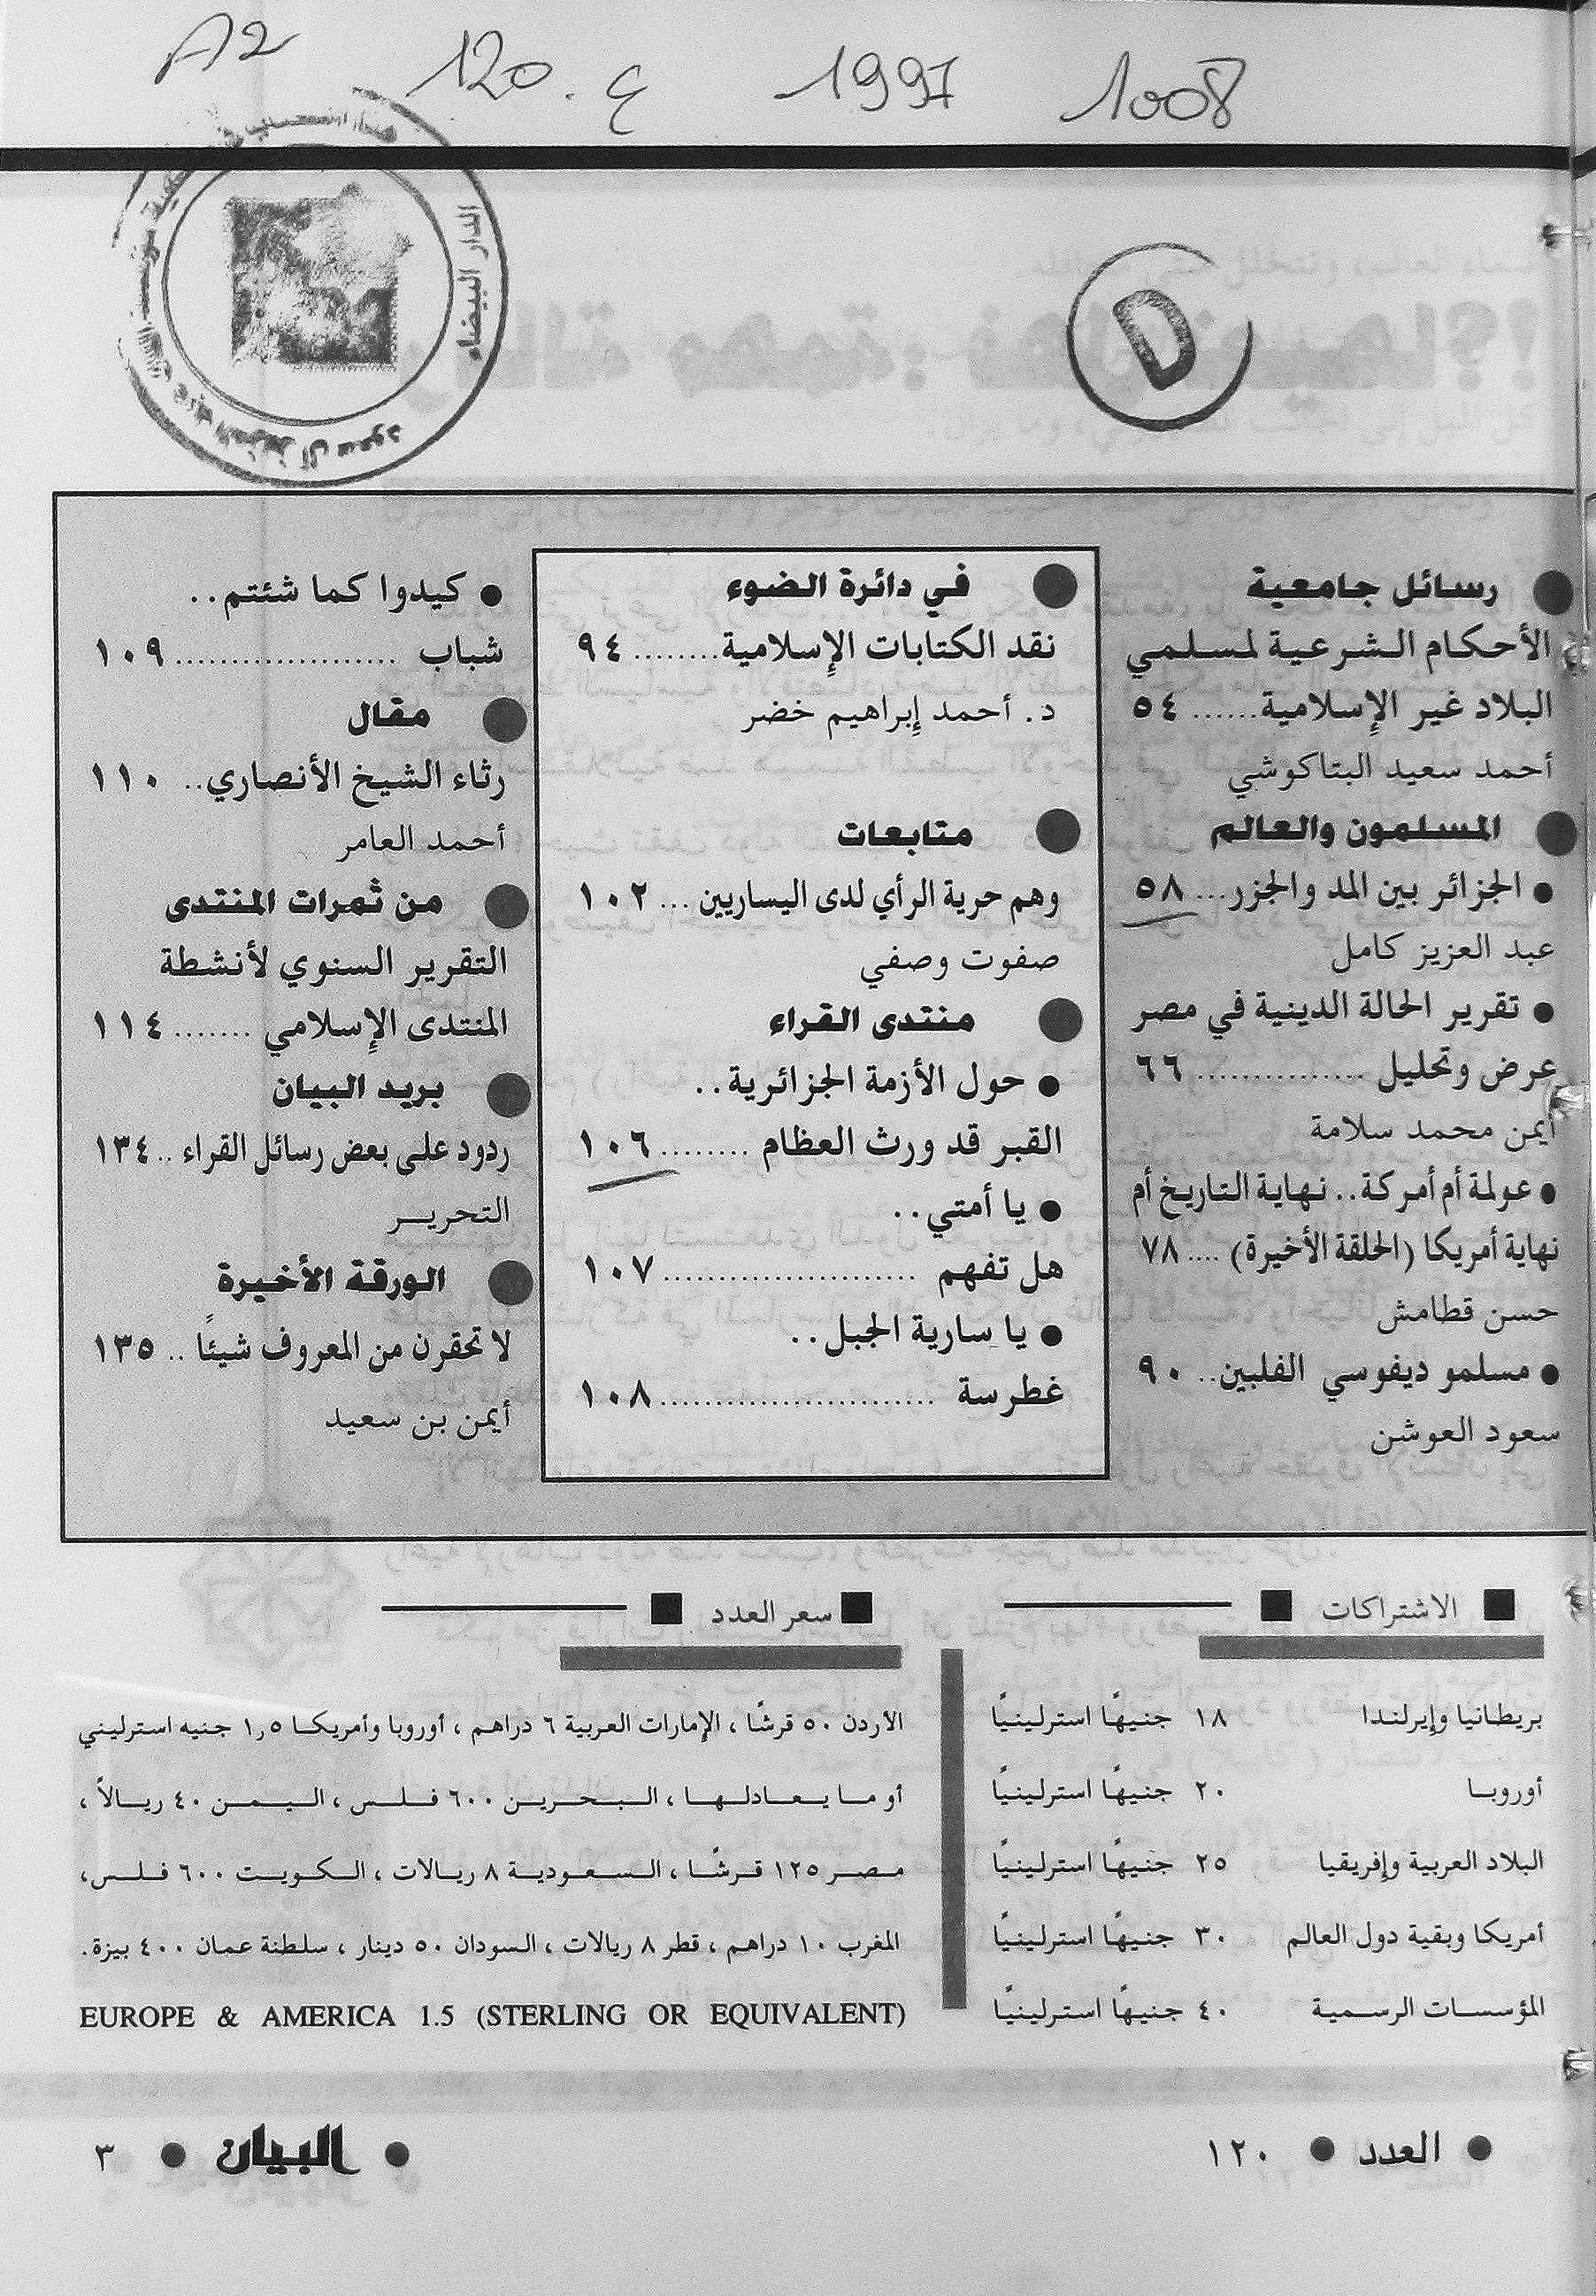 A2 120.ع 1997 1008
الدار البيضاء
D
رسائل جامعية
الأحكام الشرعية لمسلمي
البلاد غير الإسلامية...... ٥٤
أحمد سعيد البتاكوشي
المسلمون والعالم
• الجزائر بين المد والجزر... ٥٨
عبد العزيز كامل
• تقرير الحالة الدينية في مصر
عرض وتحليل ............... ٦٦
أيمن محمد سلامة
• عولمة أم أمركة.. نهاية التاريخ أم
نهاية أمريكا (الحلقة الأخيرة) .... ٧٨
حسن قطامش
• مسلمو ديفوسي الفلبين.. ٩٠
سعود العوشن
في دائرة الضوء
نقد الكتابات الإسلامية........ ٩٤
د. أحمد إبراهيم خضر
متابعات
وهم حرية الرأي لدى اليساريين ... ١٠٢
صفوت وصفي
منتدى القراء
• حول الأزمة الجزائرية..
القبر قد ورث العظام ........ ١٠٦
• يا أمتي..
هل تفهم ....................... ١٠٧
• يا سارية الجبل..
غطرسة ......................... ١٠٨
• كيدوا كما شئتم..
شباب .................... ١٠٩
مقال
رثاء الشيخ الأنصاري.. ١١٠
أحمد العامر
من ثمرات المنتدى
التقرير السنوي لأنشطة
المنتدى الإسلامي ....... ١١٤
بريد البيان
ردود على بعض رسائل القراء .. ١٣٤
التحرير
الورقة الأخيرة
لا تحقرن من المعروف شيئًا .. ١٣٥
أيمن بن سعيد
الاشتراكات
بريطانيا وإيرلندا ١٨ جنيهًا استرلينيًا
أوروبا ٢٠ جنيهًا استرلينيًا
البلاد العربية وإفريقيا ٢٥ جنيهًا استرلينيًا
أمريكا وبقية دول العالم ٣٠ جنيهًا استرلينيًا
المؤسسات الرسمية ٤٠ جنيهًا استرلينيًا
سعر العدد
الأردن ٥٠ قرشًا ، الإمارات العربية ٦ دراهم ، أوروبا وأمريكا ١,٥ جنيه استرليني
أو ما يعادلها ، البحرين ٦٠٠ فلس ، اليمن ٤٠ ريالاً ،
مصر ١٢٥ قرشًا ، السعودية ٨ ريالات ، الكويت ٦٠٠ فلس،
المغرب ١٠ دراهم ، قطر ٨ ريالات ، السودان ٥٠ دينار ، سلطنة عمان ٤٠٠ بيزة.
EUROPE & AMERICA 1.5 (STERLING OR EQUIVALENT)
• العدد • ١٢٠
• البيان • ٣